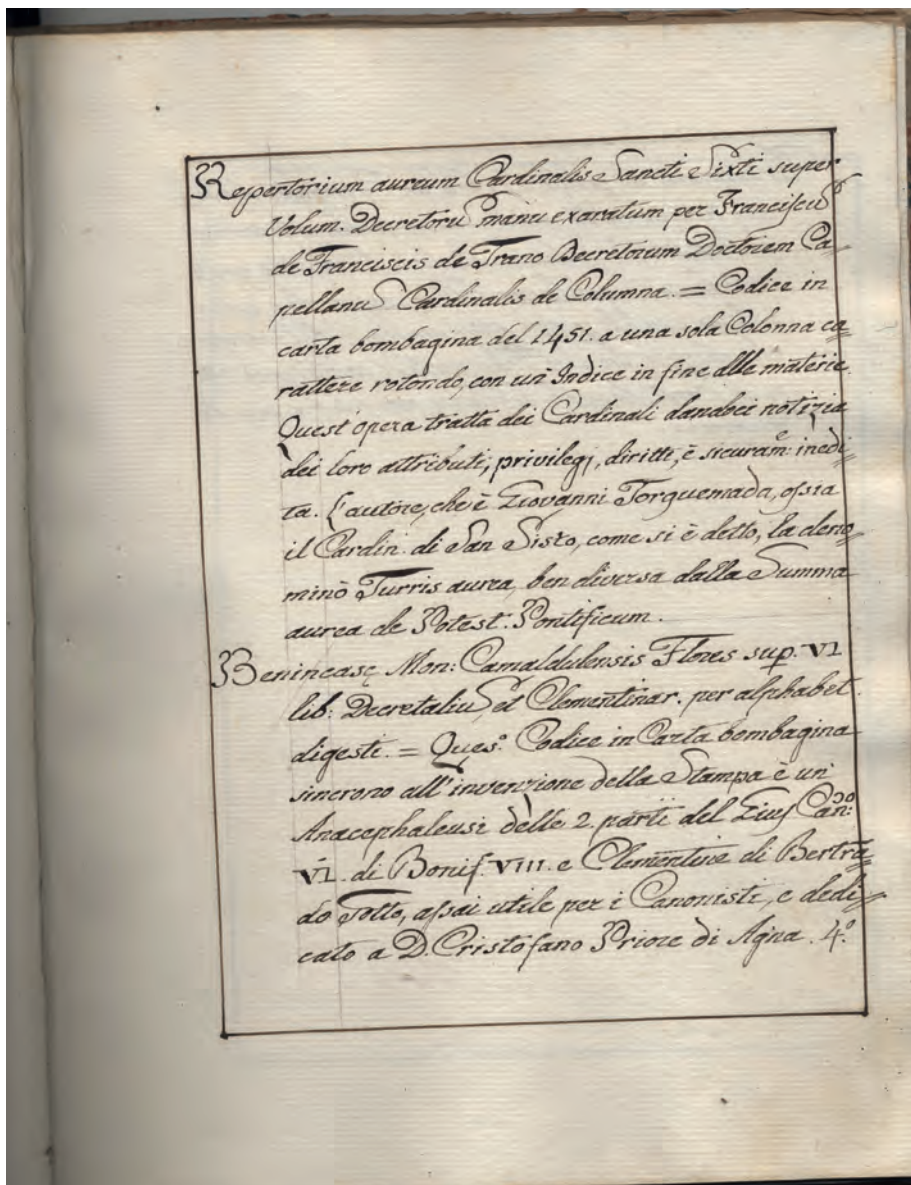 Repertorium aureum Cardinalis Sancti Sixti super
Volum. Decretorū manu exaratum per Franciscū
de Franciscis de Trano Decretorum Doctorem Ca=
pellanū Cardinalis de Columna. = Codice in
carta bombagina del 1451. a una sola Colonna ca=
rattere rotondo, con un Indice in fine dlle materie.
Quest'opera tratta dei Cardinali danaboi notizia
dei loro attributi, privilegj, diritti, è sicuram.e inedi=
ta. L'autore, che è Giovanni Torquemada, ossia
il Cardin. di San Sisto, come si è detto, la deno=
minò Turris aurea, ben diversa dalla Summa
aurea de Potest. Pontificum.
Benincasę Mon: Camaldulensis Flores sup. VI
lib: Decretaliū et Clementinar. per alphabet.
digesti. = Ques.o Codice in Carta bombagina
sincrono all'invenzione della Stampa è un'
Anacephaleusi delle 2. parti del Gius Can.co:
VI. di Bonif. VIII. e Clementine di Bertrā=
do Totto, assai utile per i Canonisti, e dedi=
cato a D. Cristofano Priore di Agna. 4.o